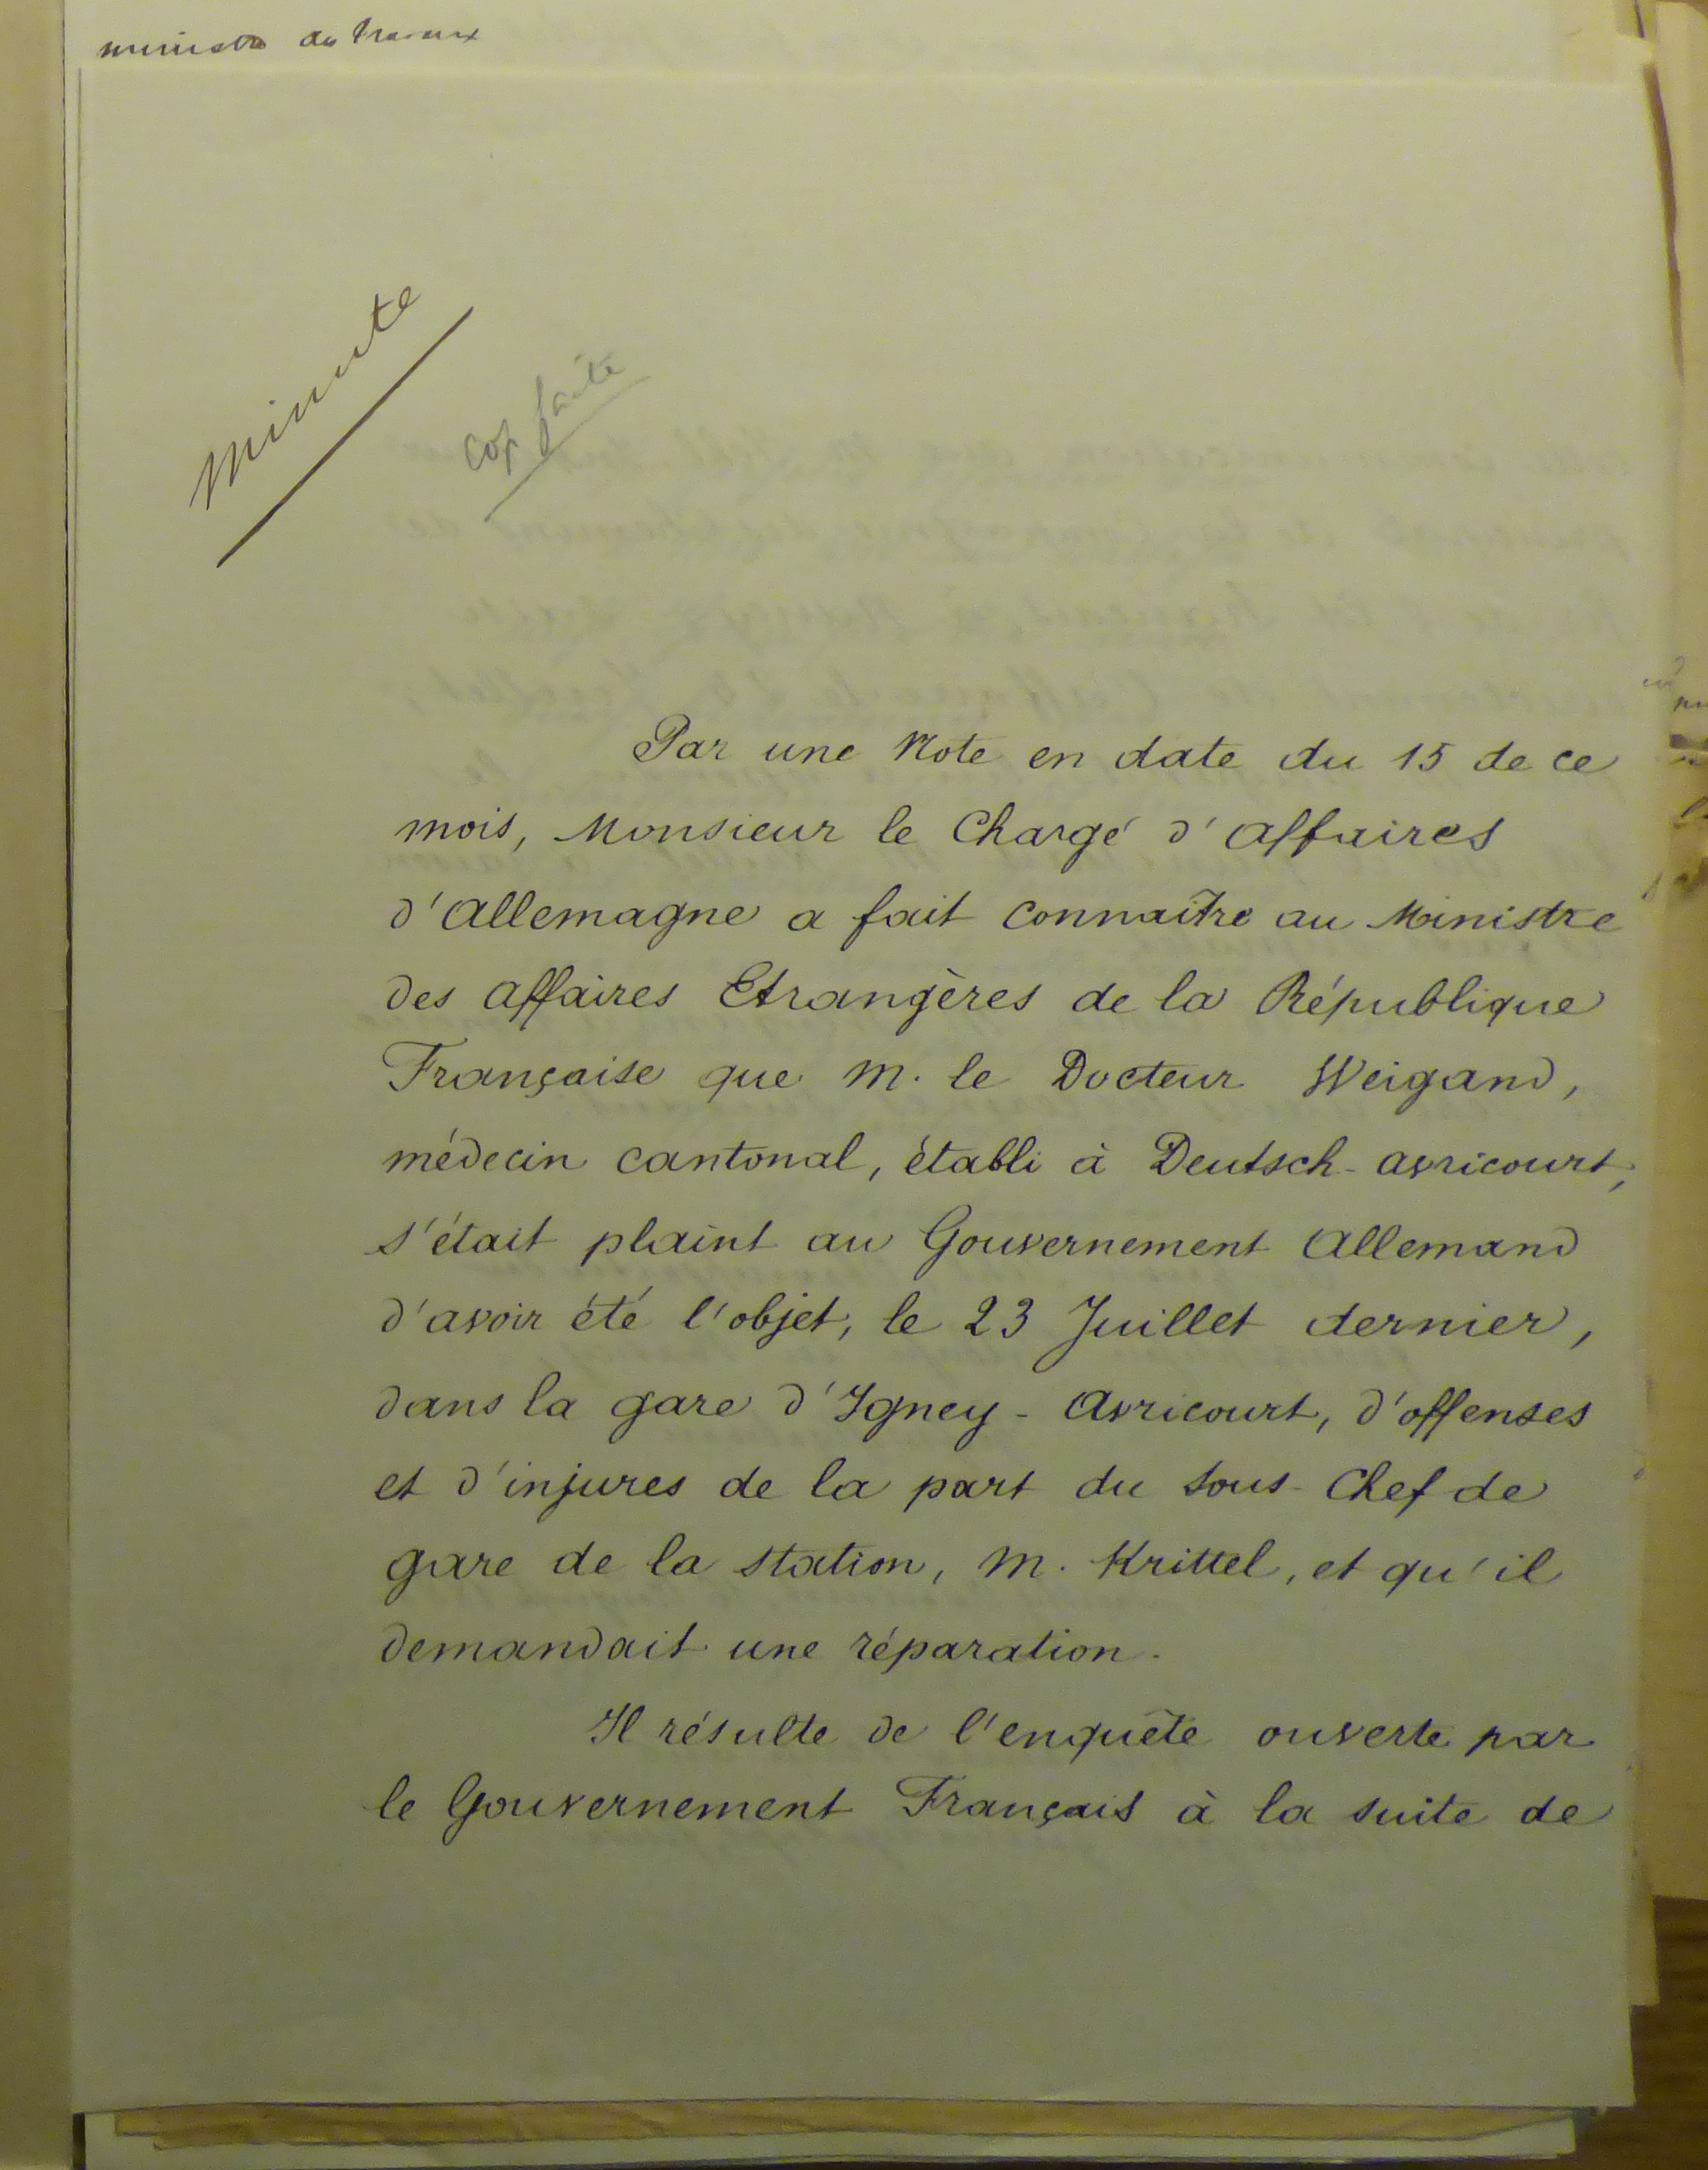 ministre des travaux
Minute
Cop faite
Par une Note en date du 15 de ce
mois, Monsieur le Chargé d'affaires
d'allemagne a fait connaître au Ministre
des affaires Etrangères de la République
Française que M. le Docteur Weigand,
médecin cantonal, établi à Deutsch-avricourt,
s'était plaint au Gouvernement allemand
d'avoir été l'objet, le 23 Juillet dernier,
dans la gare d'Igney-Avricourt, d'offenses
et d'injures de la part du Sous-Chef de
gare de la station, M. Krittel, et qu'il
demandait une réparation.
Il résulte de l'enquête ouverte par
le Gouvernement Français à la suite de